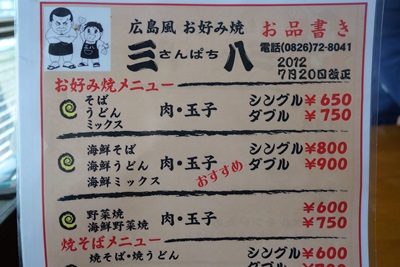 広島風 お好み焼 お品書き
三 さんぱち 八
電話(0826)72-8041
2012
7月20日改正
お好み焼メニュー
そば
うどん
ミックス
肉・玉子
シングル¥650
ダブル ¥750
海鮮そば
海鮮うどん
海鮮ミックス
肉・玉子
おすすめ
シングル¥800
ダブル ¥900
野菜焼
海鮮野菜焼
肉・玉子
¥600
¥750
焼そばメニュー
焼そば・焼うどん
シングル¥600